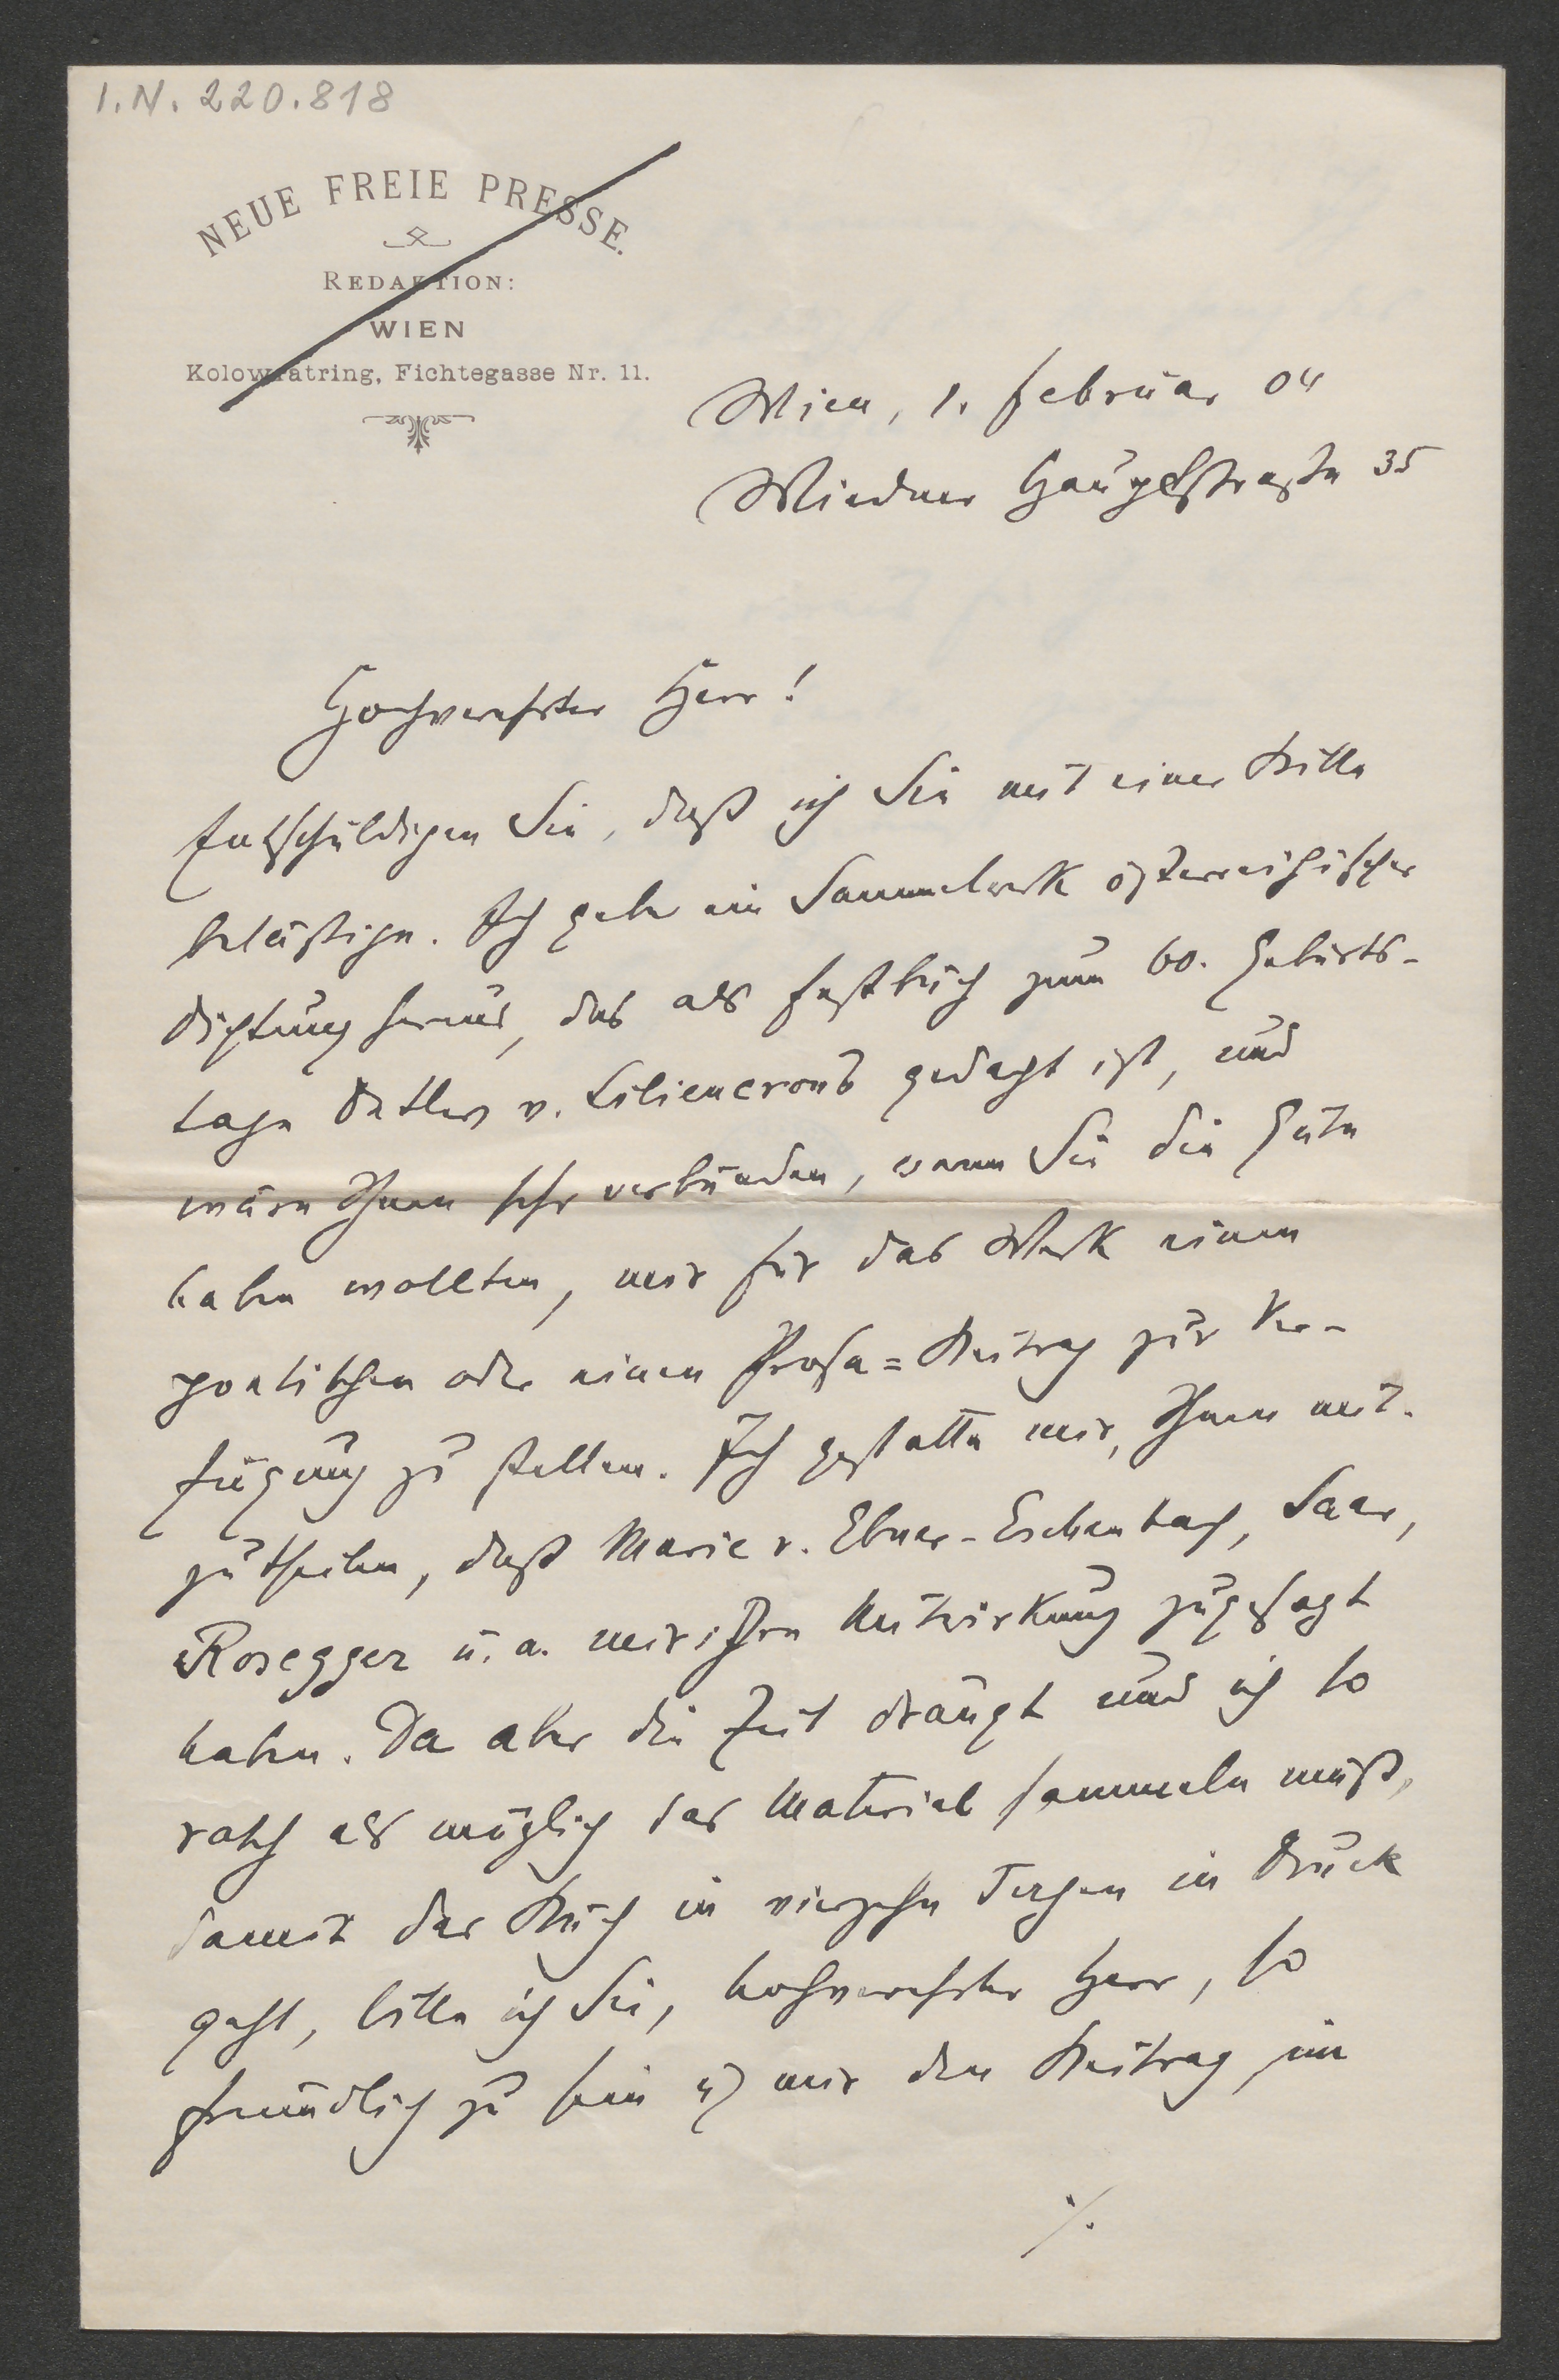 I.N. 220.818
NEUE FREIE PRESSE.
REDAKTION:
WIEN
Kolowratring, Fichtegasse Nr. 11.
Wien, 1. Februar 04
Wiedner Hauptstraße 35
Hochverehrter Herr!
Entschuldigen Sie, daß ich Sie mit einer Bitte
belästige. Ich gebe ein Sammelwerk österreichischer
Dichtung heraus, das als Festbuch zum 60. Geburts-
tage Detlev v. Liliencrons gedacht ist, und
wäre Ihnen sehr verbunden, wenn Sie die Güte
haben wollten, mir für das Werk einen
poetischen oder einen Prosa=Beitrag zur Ver-
fügung zu stellen. Ich gestatte mir, Ihnen mit-
zutheilen, daß Marie v. Ebner-Eschenbach, Saar,
Rosegger u. a. mir ihre Mitwirkung zugesagt
haben. Da aber die Zeit drängt und ich so
rasch als möglich das Material sammeln muß,
damit das Buch in vierzehn Tagen in Druck
geht, bitte ich Sie, hochverehrter Herr, so
freundlich zu sein u mir den Beitrag im
./.